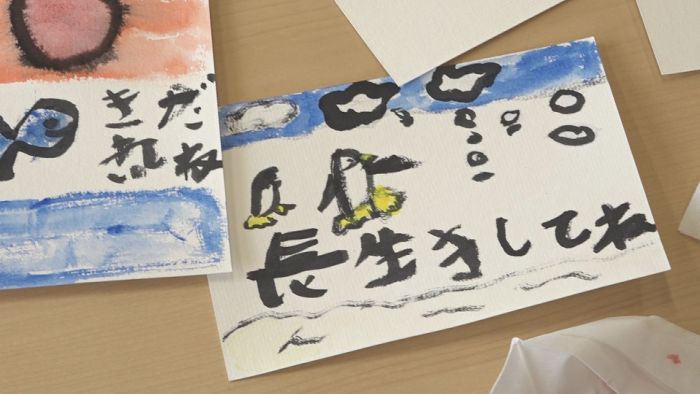 きれい
だね
長生きしてね